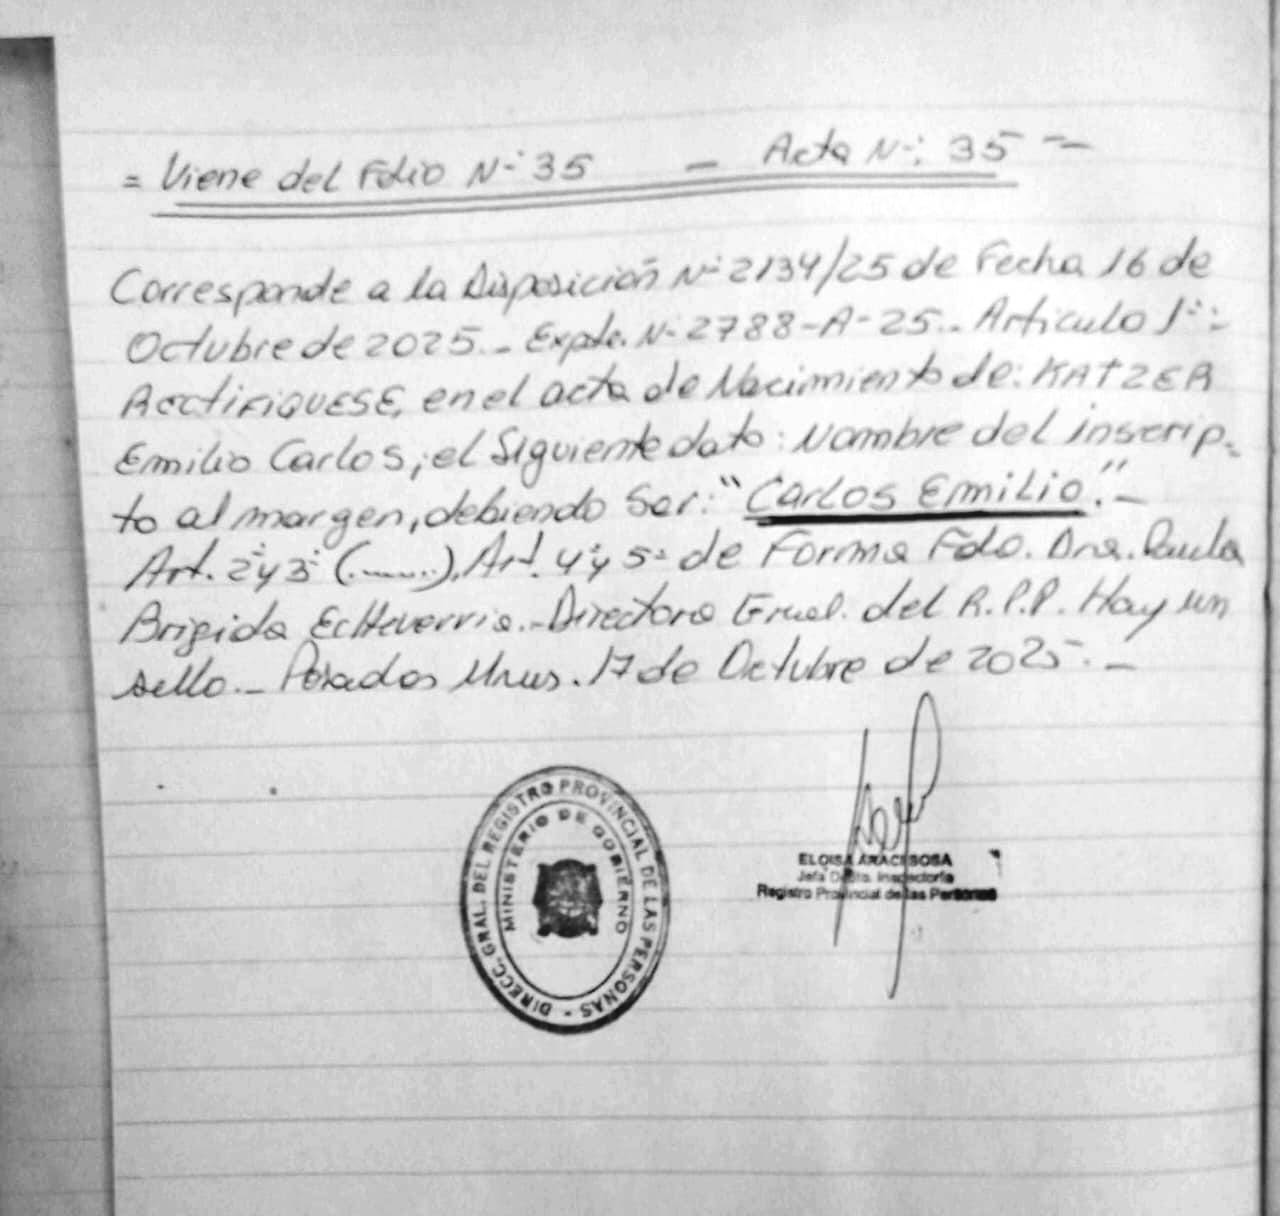 = Viene del Folio N° 35 — Acta N°: 35 =
Corresponde a la Disposición N° 2134/25 de Fecha 16 de
Octubre de 2025._ Expte. N° 2788-A-25._ Articulo 1°:
RECTIFIQUESE, en el acta de Nacimiento de: KATZER
Emilio Carlos, el Siguiente dato: Nombre del inscrip-
to al margen, debiendo Ser: "Carlos Emilio"._
Art. 2° y 3° (.......). Art. 4° y 5° de Forma Fdo. Dra. Paula
Brigida Echeverria._ Directora Gral. del R.P.P. Hay un
sello._ Posadas Mnes. 17 de Octubre de 2025._
DIRECC. GRAL. DEL REGISTRO PROVINCIAL DE LAS PERSONAS -
MINISTERIO DE GOBIERNO
ELOISA ARACI SOSA
Jefa Dpto. Inspectoría
Registro Provincial de las Personas